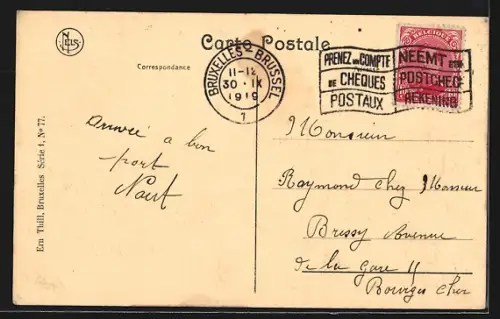 NELS
Carte Postale
Correspondance
BRUXELLES - BRUSSEL
11-12
30 · IX
1919
7
PRENEZ UN COMPTE
DE CHÈQUES
POSTAUX
NEEMT EEN
POSTCHECK
REKENING
BELGIQUE
Ern Thill, Bruxelles Série 1, No 77.
arrivée a bon
port
Monsieur
Raymond chez Monsieur
Bressy Avenue
de la gare 11
Bourges Cher